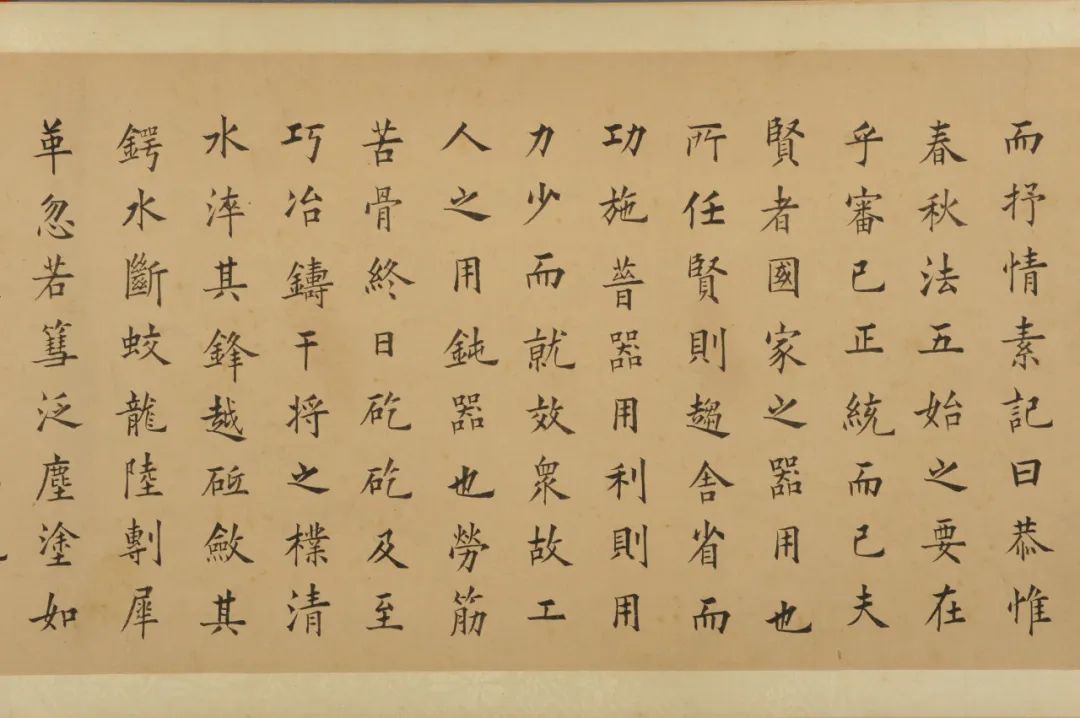 而抒情素記曰恭惟
春秋法五始之要在
乎審已正統而已夫
賢者國家之器用也
所任賢則趨舍省而
功施普器用利則用
力少而就效衆故工
人之用鈍器也勞筋
苦骨終日矻矻及至
巧冶鑄干将之樸清
水淬其鋒越砥斂其
鍔水斷蛟龍陸剸犀
革忽若篲泛塵塗如